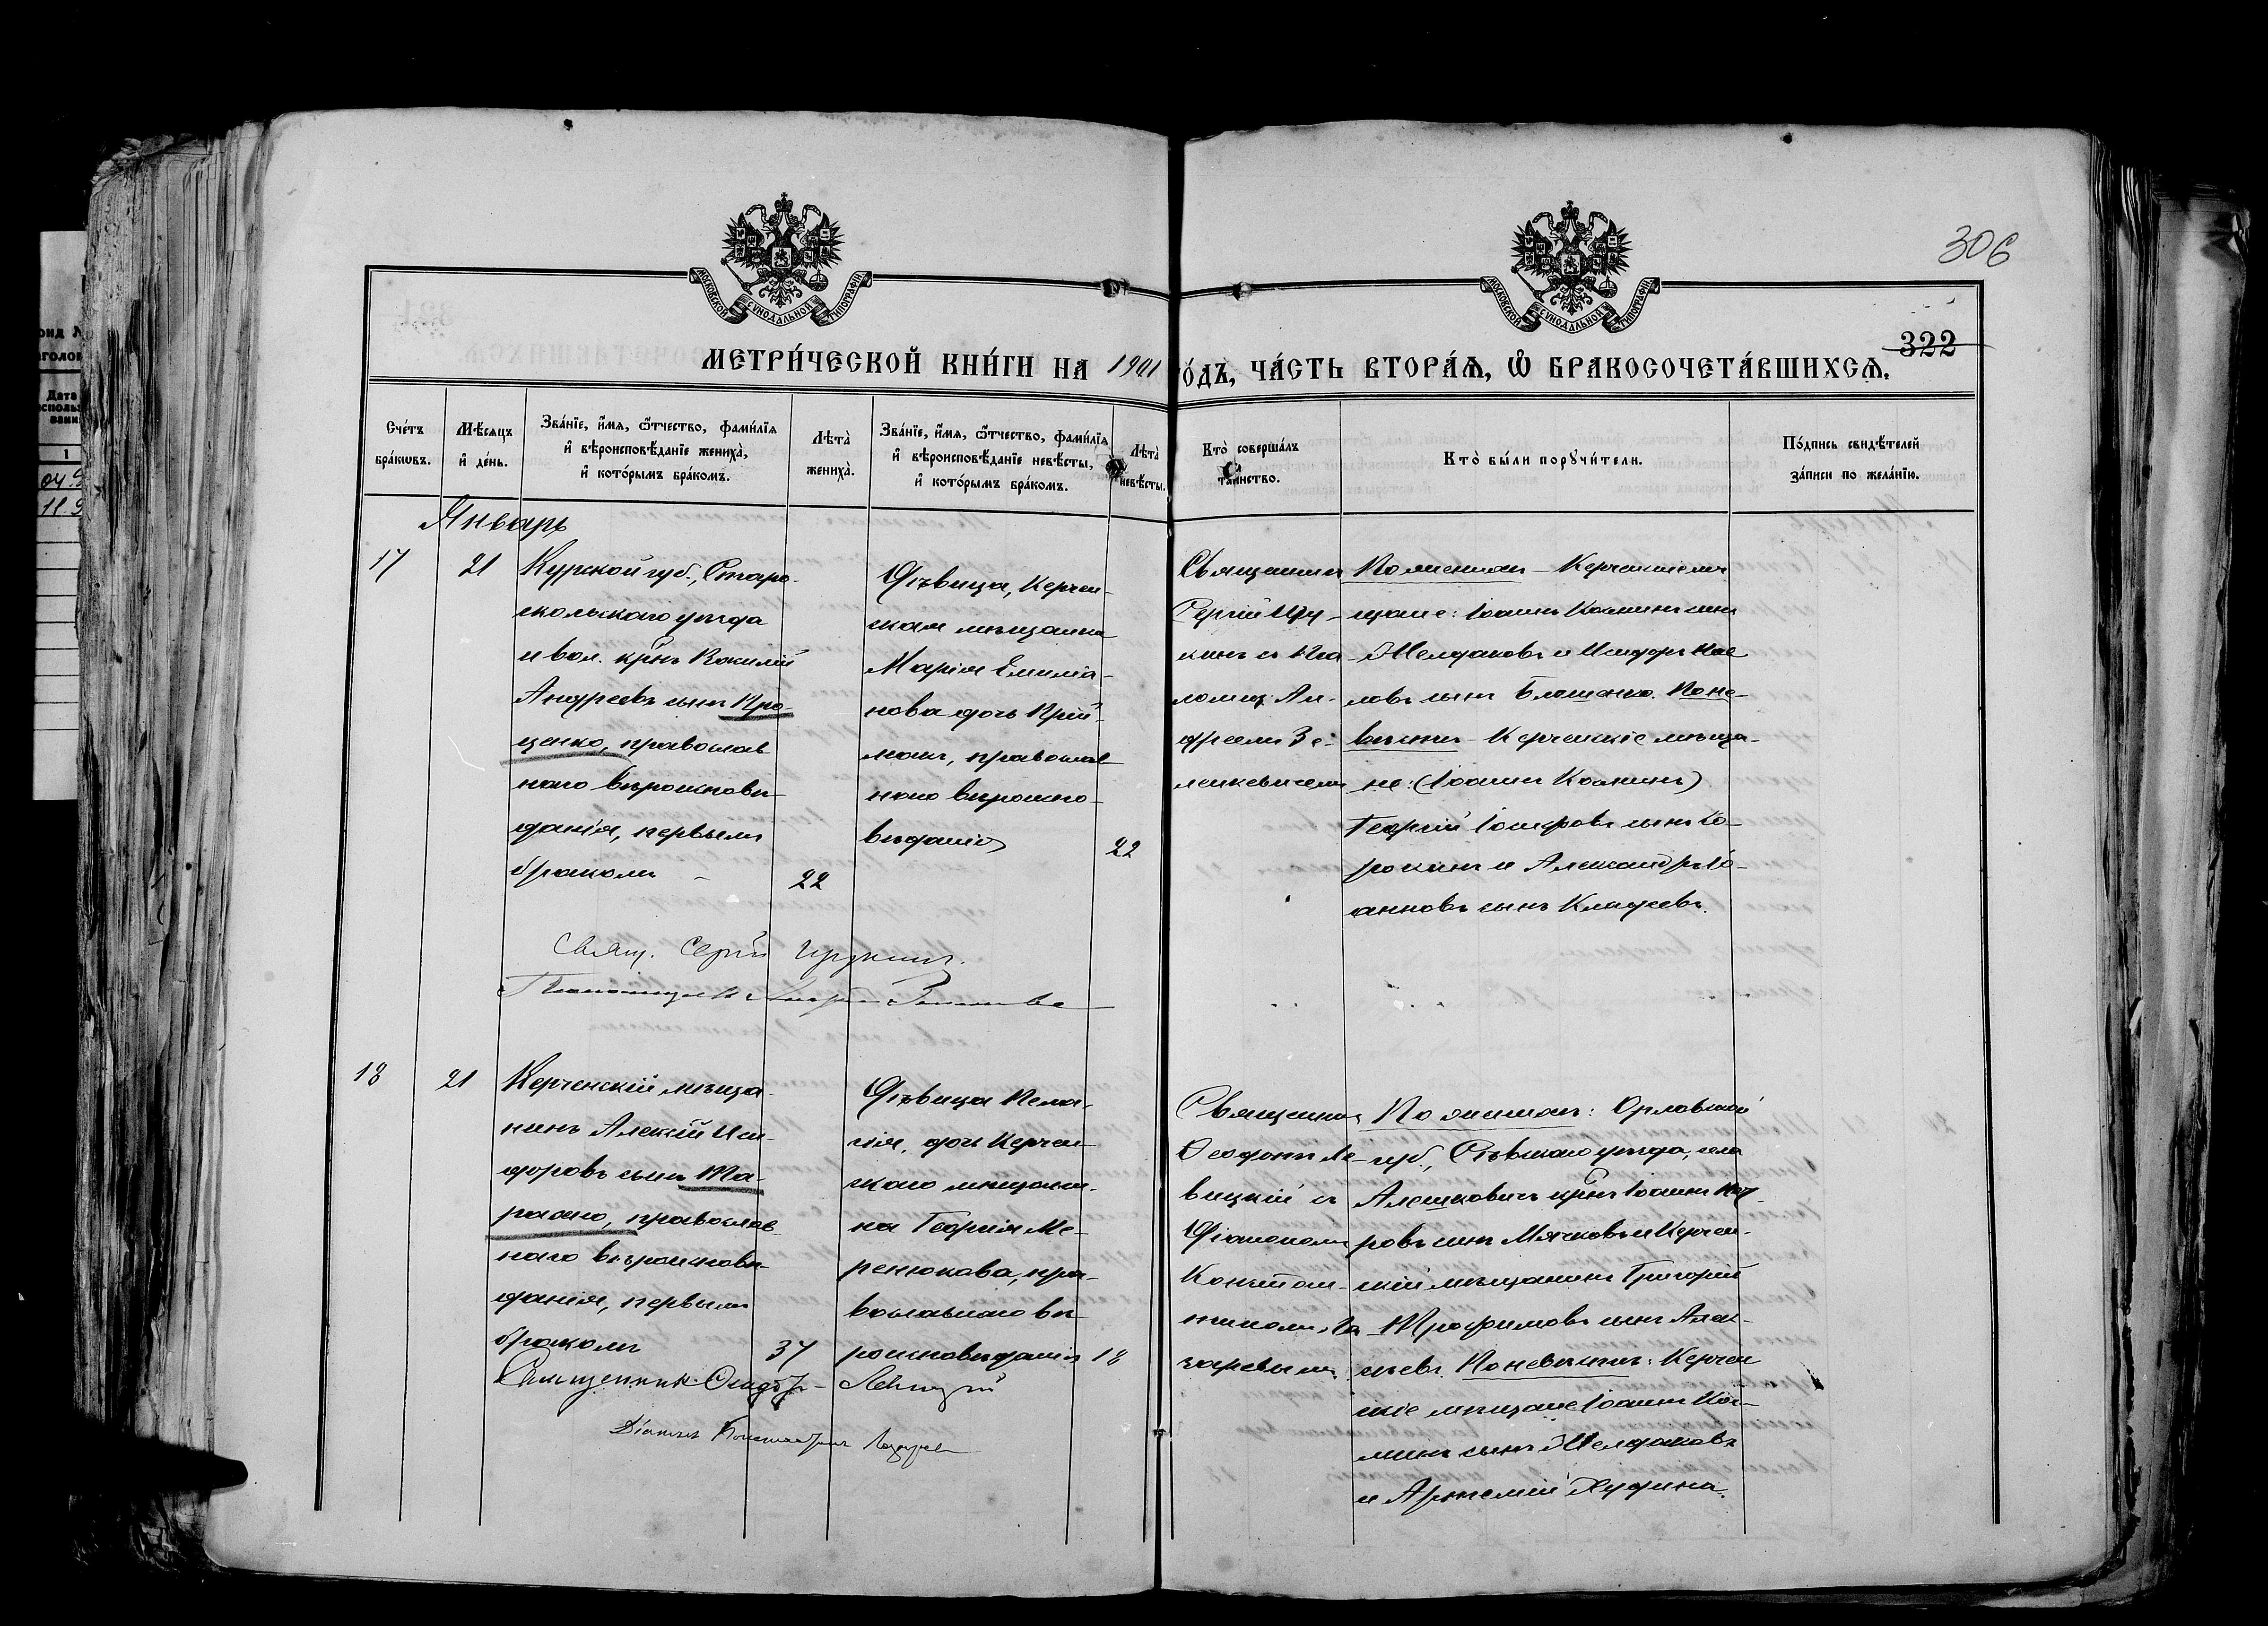 306
322
МЕТРИ́ЧЕСКОЙ КНИ́ГИ НА 1901 ГО́ДЪ, ЧА́СТЬ ВТОРА́Я, Ѽ БРАКОСОЧЕТА́ВШИХСЯ.
Сче́тъ бра́кѡвъ.
Мѣ́сяцъ и҆ де́нь.
Зва́нїе, и҆́мя, ѻ҆́тчество, фами́лїя и҆ вѣроисповѣ́данїе жениха̀, и҆ кото́рымъ бра́комъ.
Лѣта̀ жениха̀.
Зва́нїе, и҆́мя, ѻ҆́тчество, фами́лїя и҆ вѣроисповѣ́данїе невѣ́сты, и҆ кото́рымъ бра́комъ.
Лѣта̀ невѣ́сты.
Кто̀ соверша́лъ та́инство.
Кто̀ бы́ли порꙋчи́тели.
По́дпись свидѣ́телей за́писи по жела́нїю.
Январь
17
21
Курской губ., Старо-
скольскаго уѣзда
и вол. крнъ Василій
Андреевъ сынъ Про-
ценко, православ
наго вѣроисповѣ-
данія, первымъ
бракомъ
22
Дѣвица, Керчен-
ская мѣщанка
Марія Емиліа-
нова дочь Прій-
мачъ, православ
наго вѣроиспо-
вѣданія
22
Священникъ
Сергій Цу-
кинъ съ Пса-
ломщ. Ан-
дреемъ Зе-
ленкевичемъ
По женихѣ - Керченскіе мѣ-
щане: Іоаннъ Косминъ сынъ
Желудковъ и Исидоръ Пав
ловъ сынъ Блошенко. По не-
вѣстѣ - Керченскіе мѣща-
не: (Іоаннъ Косминъ)
Георгій Іосифовъ сынъ Со-
рокинъ и Александръ Іо-
анновъ сынъ Кладжевъ.
Свящ. Сергій Цукинъ.
Псаломщикъ Андрей
18
21
Керченскій мѣща-
нинъ Алексій Иси-
доровъ сынъ Та-
расенко, православ
наго вѣроисповѣ-
данія, первымъ
бракомъ
37
Дѣвица Пела-
гія, дочь Керчен-
скаго мѣщани-
на Георгія Ме-
ренюкова, пра-
вославнаго вѣ-
роисповѣданія
18
Священникъ
Ѳеодотъ Ле-
вицкій съ
Діакономъ
Констан-
тиномъ Ла-
заревымъ
По женихѣ: Орловской
губ., Сѣвскаго уѣзда, села
Алешковичъ крнъ Іоаннъ Пет-
ровъ сынъ Мячковъ и Керчен-
скій мѣщанинъ Григорій
Трофимовъ сынъ Алек-
сѣевъ. По невѣстѣ: Керчен
скіе мѣщане Іоаннъ Кос-
минъ сынъ Желудковъ
и Артемій Худина.
Священникъ Ѳеодотъ Левицкій
Діаконъ Константинъ Лазаревъ